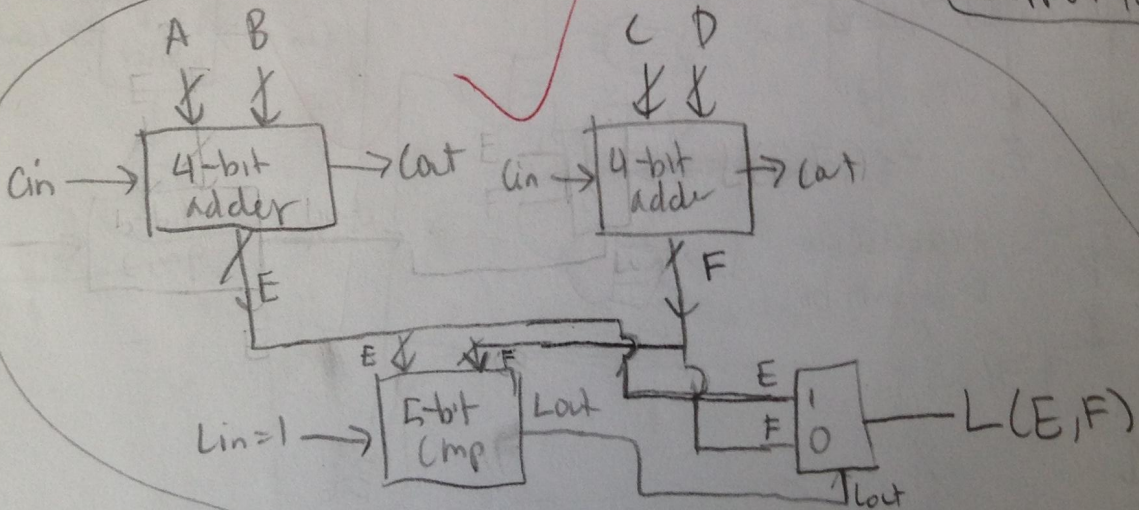 A B
C D
Cin
4-bit
adder
Cout
Cin
4-bit
adde
Cout
E
F
E
F
Lin=1
5-bit
Cmp
Lout
E
F
1
0
L(E,F)
Lout